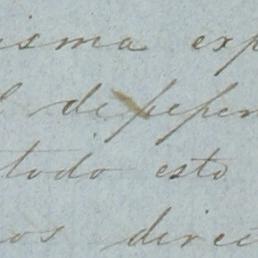 isma exp
l de
todo esto
os direc